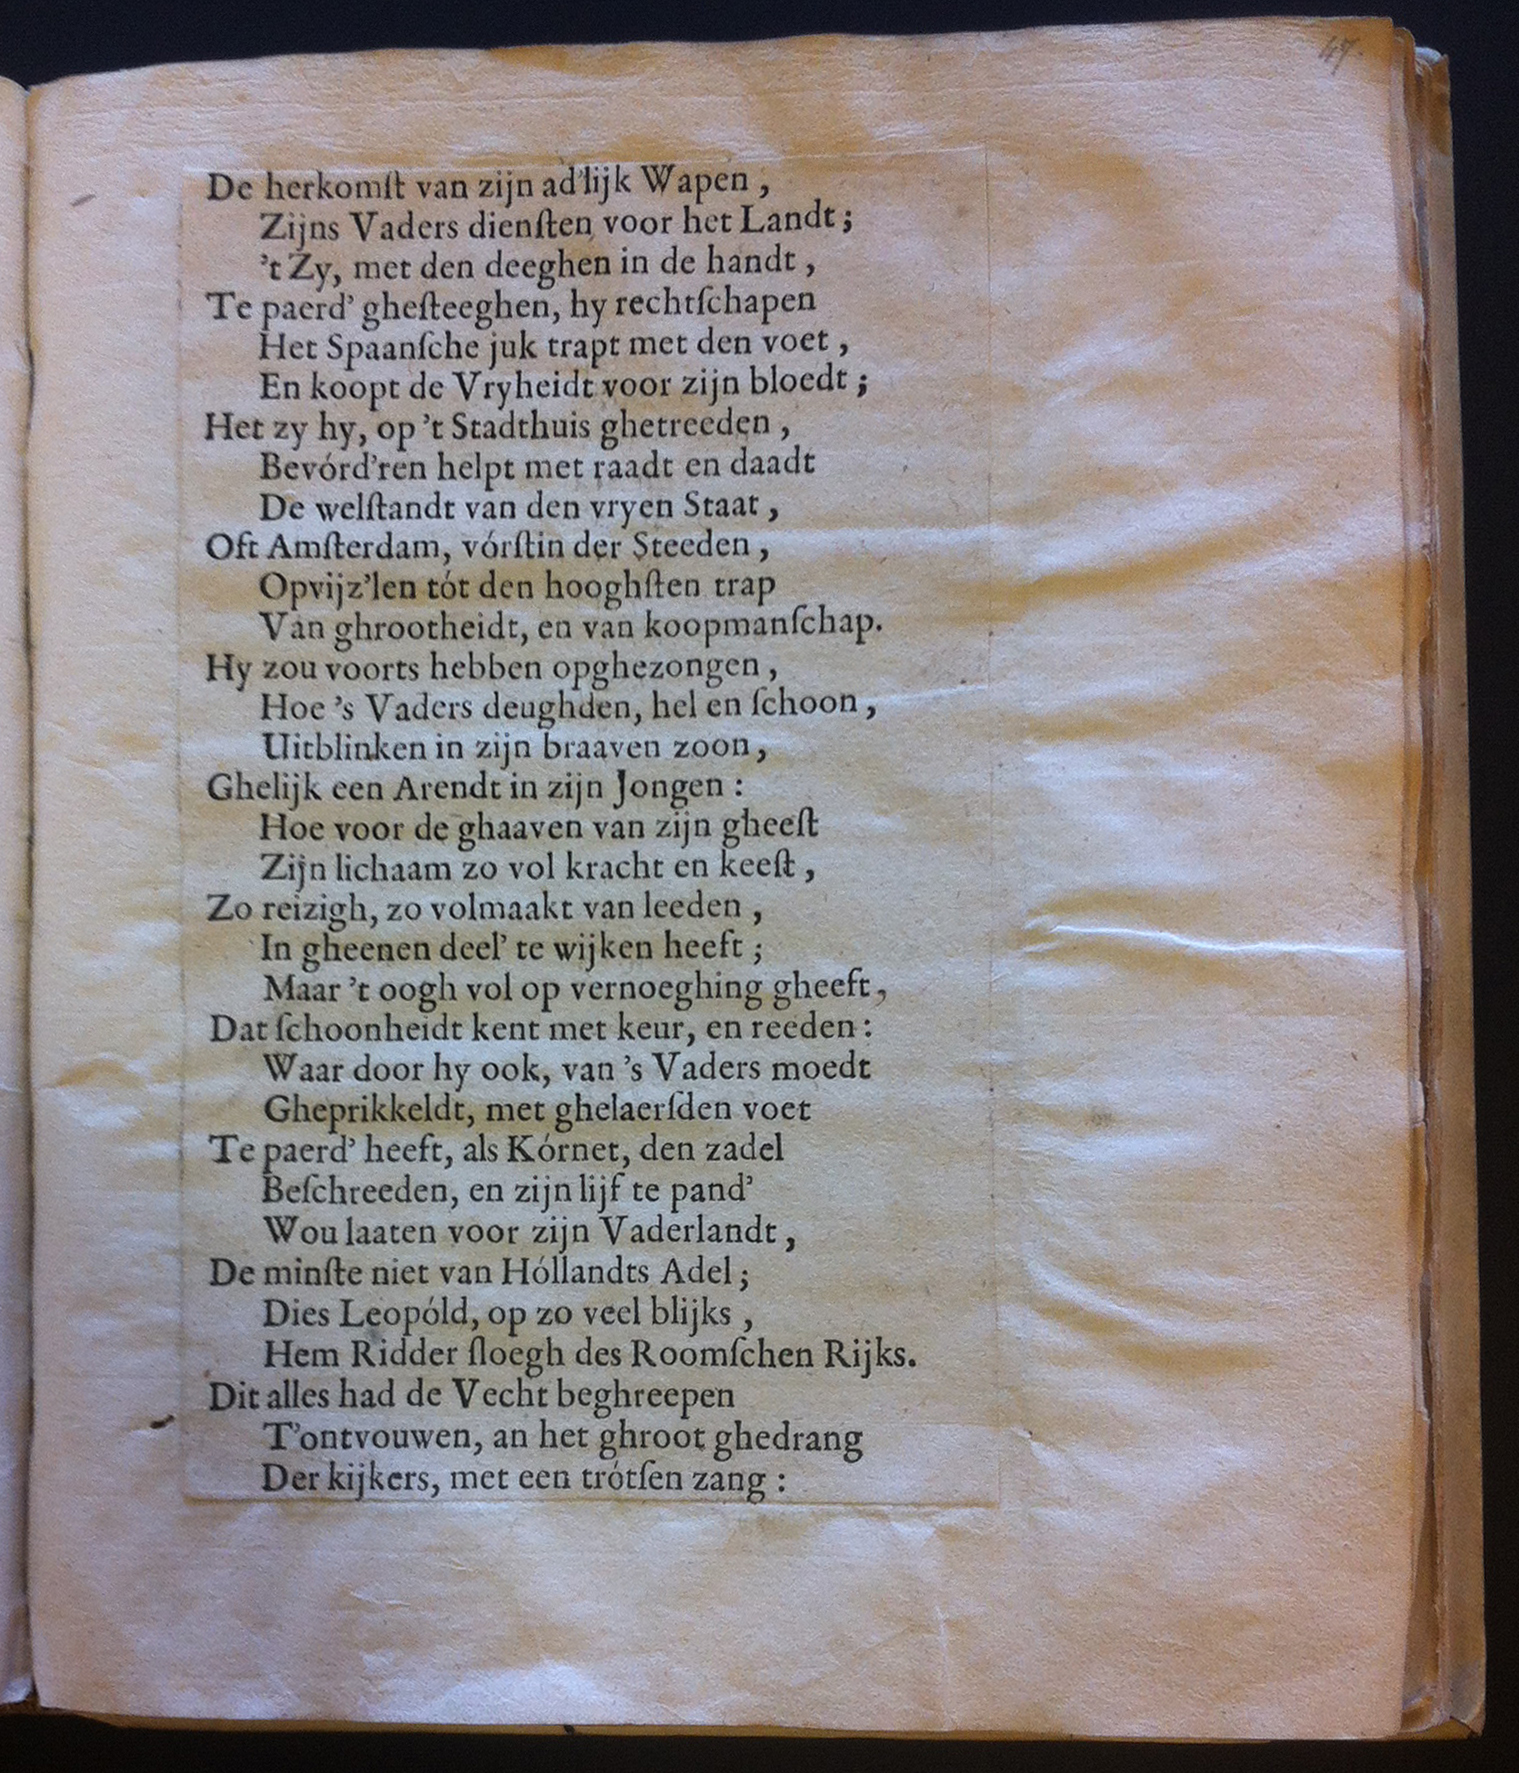 47.
De herkomſt van zijn ad'lijk Wapen,
Zijns Vaders dienſten voor het Landt;
't Zy, met den deeghen in de handt,
Te paerd' gheſteeghen, hy rechtſchapen
Het Spaanſche juk trapt met den voet,
En koopt de Vryheidt voor zijn bloedt;
Het zy hy, op 't Stadthuis ghetreeden,
Bevórd'ren helpt met raadt en daadt
De welſtandt van den vryen Staat,
Oft Amſterdam, vórſtin der Steeden,
Opvijz'len tót den hooghſten trap
Van ghrootheidt, en van koopmanſchap.
Hy zou voorts hebben opghezongen,
Hoe 's Vaders deughden, hel en ſchoon,
Uitblinken in zijn braaven zoon,
Ghelijk een Arendt in zijn Jongen:
Hoe voor de ghaaven van zijn gheeſt
Zijn lichaam zo vol kracht en keeſt,
Zo reizigh, zo volmaakt van leeden,
In gheenen deel' te wijken heeft;
Maar 't oogh vol op vernoeghing gheeft,
Dat ſchoonheidt kent met keur, en reeden:
Waar door hy ook, van 's Vaders moedt
Gheprikkeldt, met ghelaerſden voet
Te paerd' heeft, als Kórnet, den zadel
Beſchreeden, en zijn lijf te pand'
Wou laaten voor zijn Vaderlandt,
De minſte niet van Hóllandts Adel;
Dies Leopóld, op zo veel blijks,
Hem Ridder ſloegh des Roomſchen Rijks.
Dit alles had de Vecht beghreepen
T'ontvouwen, an het ghroot ghedrang
Der kijkers, met een trótſen zang: